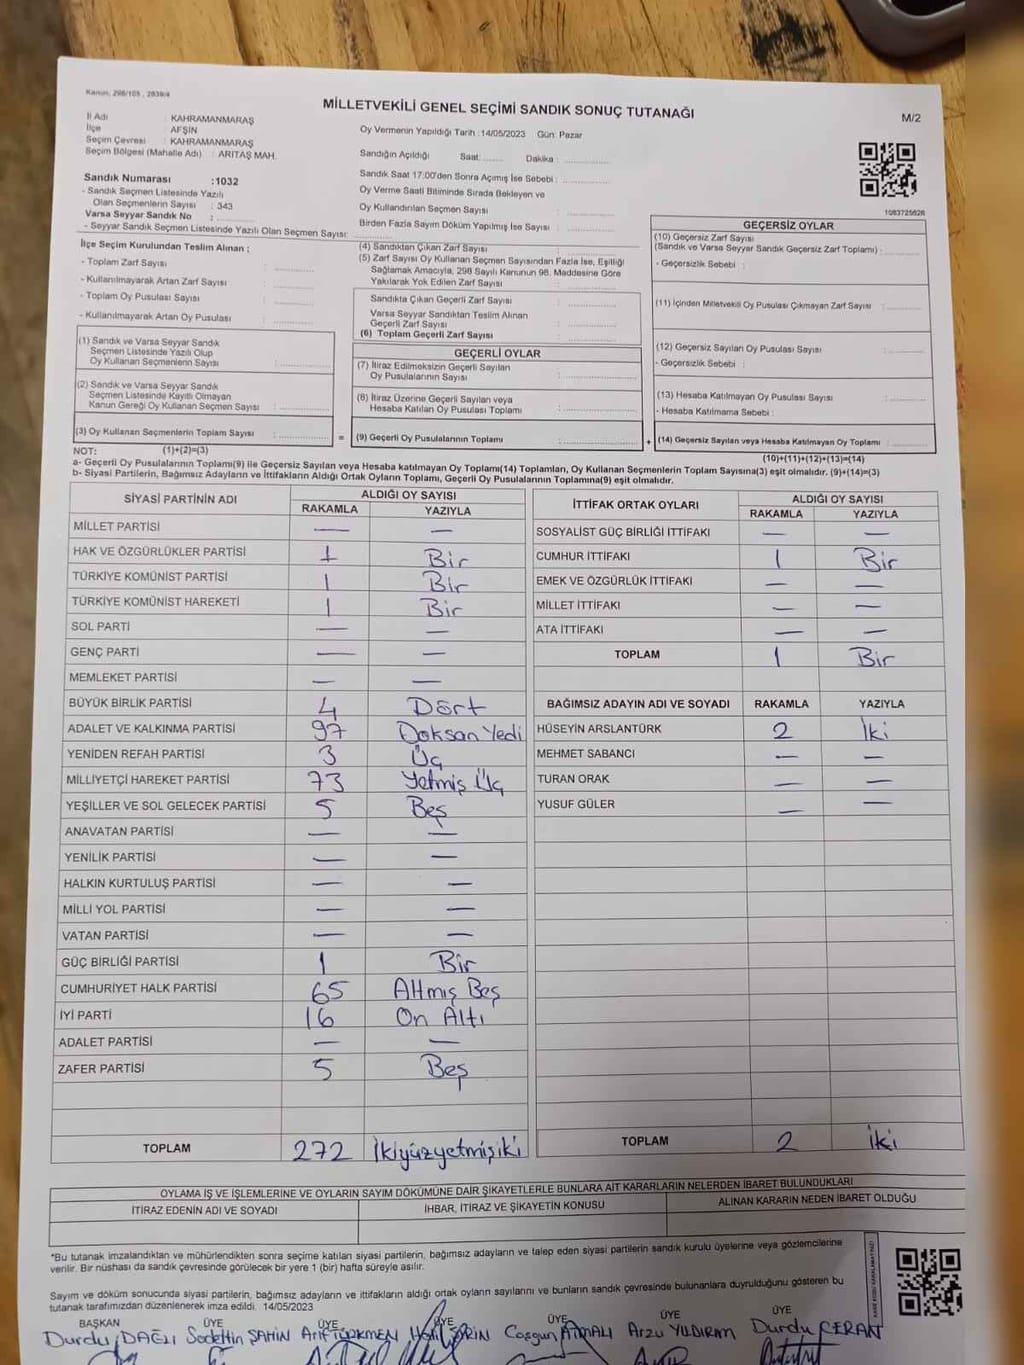 Kanun, 298/105 , 2839/4
MİLLETVEKİLİ GENEL SEÇİMİ SANDIK SONUÇ TUTANAĞI
M/2
İl Adı : KAHRAMANMARAŞ
İlçe : AFŞİN
Seçim Çevresi : KAHRAMANMARAŞ
Seçim Bölgesi (Mahalle Adı) : ARITAŞ MAH.
Sandık Numarası :1032
- Sandık Seçmen Listesinde Yazılı
Olan Seçmenlerin Sayısı : 343
Varsa Seyyar Sandık No :
- Seyyar Sandık Seçmen Listesinde Yazılı Olan Seçmen Sayısı:
İlçe Seçim Kurulundan Teslim Alınan ;
- Toplam Zarf Sayısı :
- Kullanılmayarak Artan Zarf Sayısı :
- Toplam Oy Pusulası Sayısı :
- Kullanılmayarak Artan Oy Pusulası :
(1) Sandık ve Varsa Seyyar Sandık
Seçmen Listesinde Yazılı Olup
Oy Kullanan Seçmenlerin Sayısı :
(2) Sandık ve Varsa Seyyar Sandık
Seçmen Listesinde Kayıtlı Olmayan
Kanun Gereği Oy Kullanan Seçmen Sayısı :
(3) Oy Kullanan Seçmenlerin Toplam Sayısı :
Oy Vermenin Yapıldığı Tarih :14/05/2023 Gün: Pazar
Sandığın Açıldığı Saat: Dakika :
Sandık Saat 17:00'den Sonra Açımış İse Sebebi :
Oy Verme Saati Bitiminde Sırada Bekleyen ve
Oy Kullandırılan Seçmen Sayısı :
Birden Fazla Sayım Döküm Yapılmış İse Sayısı :
(4) Sandıktan Çıkan Zarf Sayısı :
(5) Zarf Sayısı Oy Kullanan Seçmen Sayısından Fazla İse, Eşitliği
Sağlamak Amacıyla, 298 Sayılı Kanunun 98. Maddesine Göre
Yakılarak Yok Edilen Zarf Sayısı :
Sandıkta Çıkan Geçerli Zarf Sayısı :
Varsa Seyyar Sandıktan Teslim Alınan
Geçerli Zarf Sayısı :
(6) Toplam Geçerli Zarf Sayısı :
GEÇERLİ OYLAR
(7) İtiraz Edilmeksizin Geçerli Sayılan
Oy Pusulalarının Sayısı :
(8) İtiraz Üzerine Geçerli Sayılan veya
Hesaba Katılan Oy Pusulası Toplamı :
= (9) Geçerli Oy Pusulalarının Toplamı :
1083725626
GEÇERSİZ OYLAR
(10) Geçersiz Zarf Sayısı
(Sandık ve Varsa Seyyar Sandık Geçersiz Zarf Toplamı) :
- Geçersizlik Sebebi :
(11) İçinden Milletvekili Oy Pusulası Çıkmayan Zarf Sayısı :
(12) Geçersiz Sayılan Oy Pusulası Sayısı :
- Geçersizlik Sebebi :
(13) Hesaba Katılmayan Oy Pusulası Sayısı :
- Hesaba Katılmama Sebebi :
+ (14) Geçersiz Sayılan veya Hesaba Katılmayan Oy Toplamı :
NOT: (1)+(2)=(3)
(10)+(11)+(12)+(13)=(14)
a- Geçerli Oy Pusulalarının Toplamı(9) ile Geçersiz Sayılan veya Hesaba katılmayan Oy Toplamı(14) Toplamları, Oy Kullanan Seçmenlerin Toplam Sayısına(3) eşit olmalıdır. (9)+(14)=(3)
b- Siyasi Partilerin, Bağımsız Adayların ve İttifakların Aldığı Ortak Oyların Toplamı, Geçerli Oy Pusulalarının Toplamına(9) eşit olmalıdır.
SİYASİ PARTİNİN ADI ALDIĞI OY SAYISI
RAKAMLA YAZIYLA
MİLLET PARTİSİ — —
HAK VE ÖZGÜRLÜKLER PARTİSİ 1 Bir
TÜRKİYE KOMÜNİST PARTİSİ 1 Bir
TÜRKİYE KOMÜNİST HAREKETİ 1 Bir
SOL PARTİ — —
GENÇ PARTİ — —
MEMLEKET PARTİSİ — —
BÜYÜK BİRLİK PARTİSİ 4 Dört
ADALET VE KALKINMA PARTİSİ 97 Doksan Yedi
YENİDEN REFAH PARTİSİ 3 Üç
MİLLİYETÇİ HAREKET PARTİSİ 73 Yetmiş Üç
YEŞİLLER VE SOL GELECEK PARTİSİ 5 Beş
ANAVATAN PARTİSİ — —
YENİLİK PARTİSİ — —
HALKIN KURTULUŞ PARTİSİ — —
MİLLİ YOL PARTİSİ — —
VATAN PARTİSİ — —
GÜÇ BİRLİĞİ PARTİSİ 1 Bir
CUMHURİYET HALK PARTİSİ 65 Altmış Beş
İYİ PARTİ 16 On Altı
ADALET PARTİSİ — —
ZAFER PARTİSİ 5 Beş
TOPLAM 272 İkiyüzyetmişiki
İTTİFAK ORTAK OYLARI ALDIĞI OY SAYISI
RAKAMLA YAZIYLA
SOSYALİST GÜÇ BİRLİĞİ İTTİFAKI — —
CUMHUR İTTİFAKI 1 Bir
EMEK VE ÖZGÜRLÜK İTTİFAKI — —
MİLLET İTTİFAKI — —
ATA İTTİFAKI — —
TOPLAM 1 Bir
BAĞIMSIZ ADAYIN ADI VE SOYADI RAKAMLA YAZIYLA
HÜSEYİN ARSLANTÜRK 2 İki
MEHMET SABANCI — —
TURAN ORAK — —
YUSUF GÜLER — —
TOPLAM 2 İki
OYLAMA İŞ VE İŞLEMLERİNE VE OYLARIN SAYIM DÖKÜMÜNE DAİR ŞİKAYETLERLE BUNLARA AİT KARARLARIN NELERDEN İBARET BULUNDUKLARI
İTİRAZ EDENİN ADI VE SOYADI İHBAR, İTİRAZ VE ŞİKAYETİN KONUSU ALINAN KARARIN NEDEN İBARET OLDUĞU
*Bu tutanak imzalandıktan ve mühürlendikten sonra seçime katılan siyasi partilerin, bağımsız adayların ve talep eden siyasi partilerin sandık kurulu üyelerine veya gözlemcilerine
verilir. Bir nüshası da sandık çevresinde görülecek bir yere 1 (bir) hafta süreyle asılır.
Sayım ve döküm sonucunda siyasi partilerin, bağımsız adayların ve ittifakların aldığı ortak oyların sayılarını ve bunların sandık çevresinde bulunanlara duyrulduğunu gösteren bu
tutanak tarafımızdan düzenlenerek imza edildi. 14/05/2023
BAŞKAN ÜYE ÜYE ÜYE ÜYE ÜYE ÜYE
Durdu DAĞLI Sadettin ŞAHİN Arif TÜRKMEN Coşgun Arzu YILDIRIM Durdu CERAN